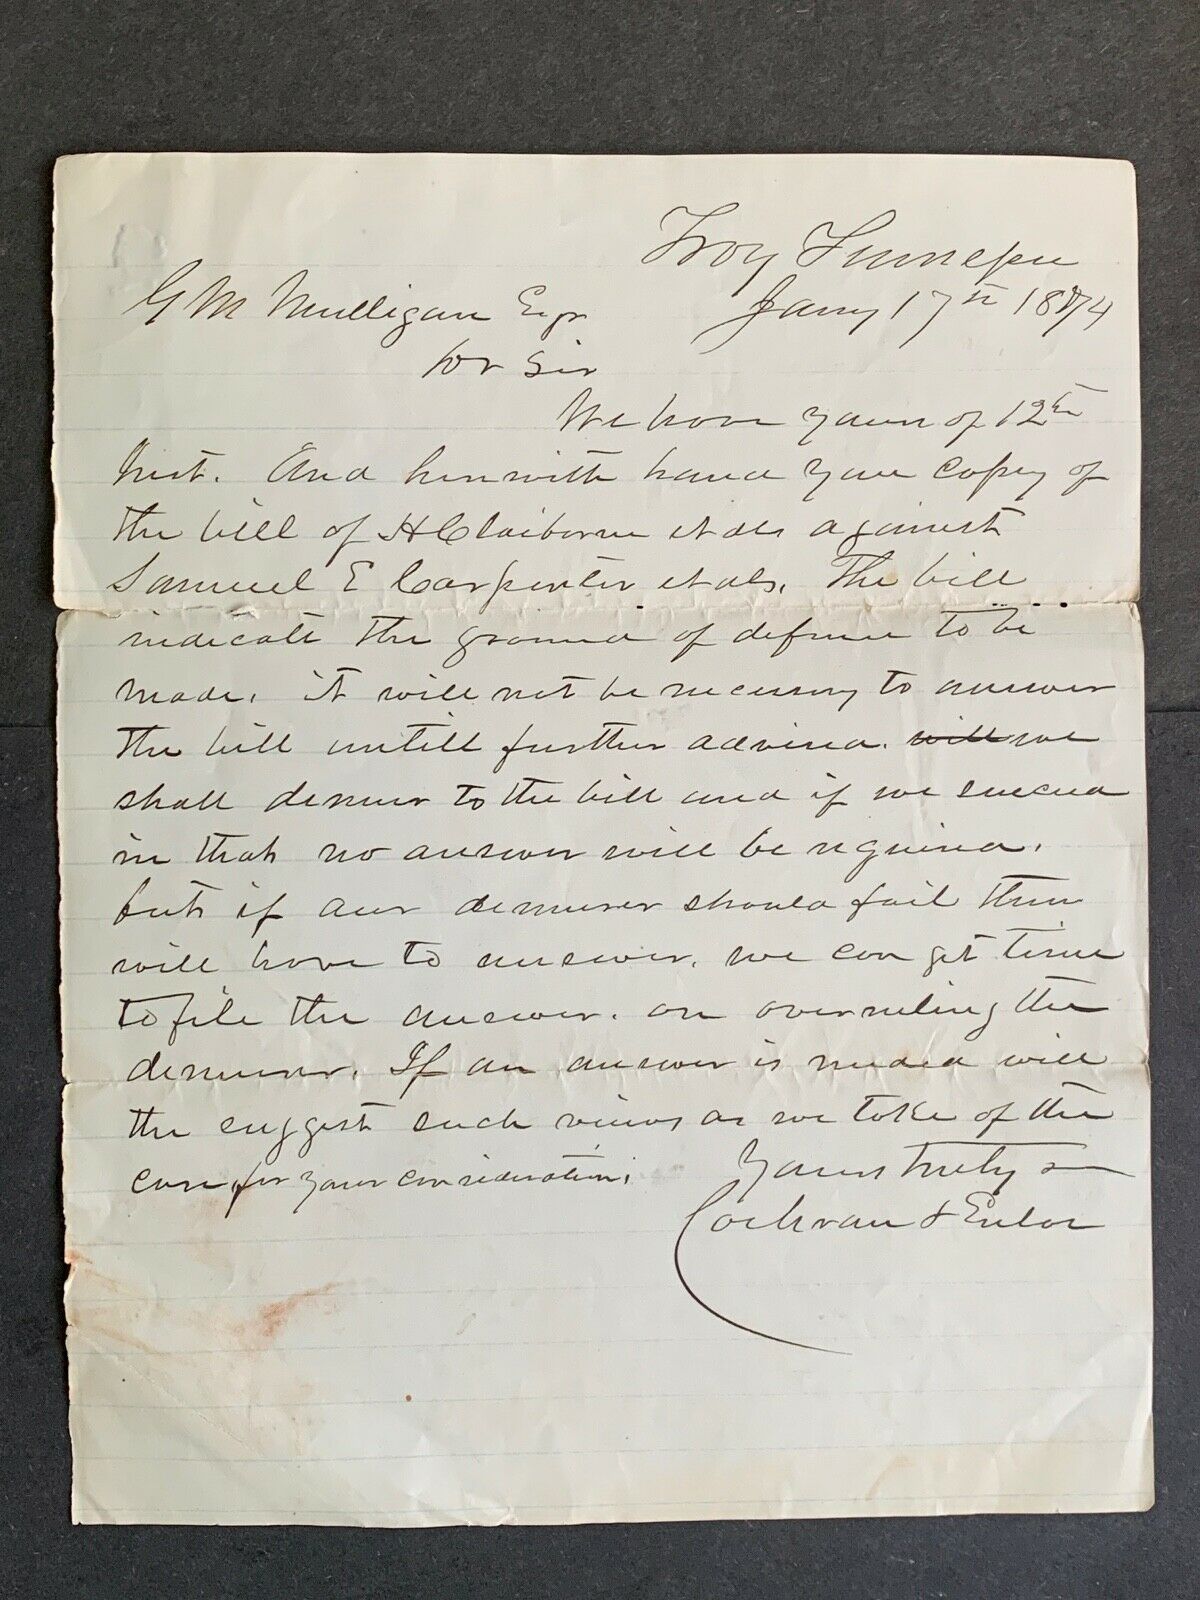 Troy Tennessee
G M Mulligan Esqr Jany 17th 1874
Dr Sir
We have yours of 12th
Inst. And herewith hand you copy of
the bill of H Claiborne et als against
Samuel E Carpenter et als. The bill
indicate the ground of defence to be
made. it will not be necessary to answer
the bill untill further advised. will we
shall demur to the bill and if we succeed
in that no answer will be required.
but if our demurer should fail then
will have to answer. we can get time
to file the answer. on overruling the
demurer. If an answer is needed will
the suggest such views as we take of the
case, for your consideration.
Yours truly
Cochran & Enloe